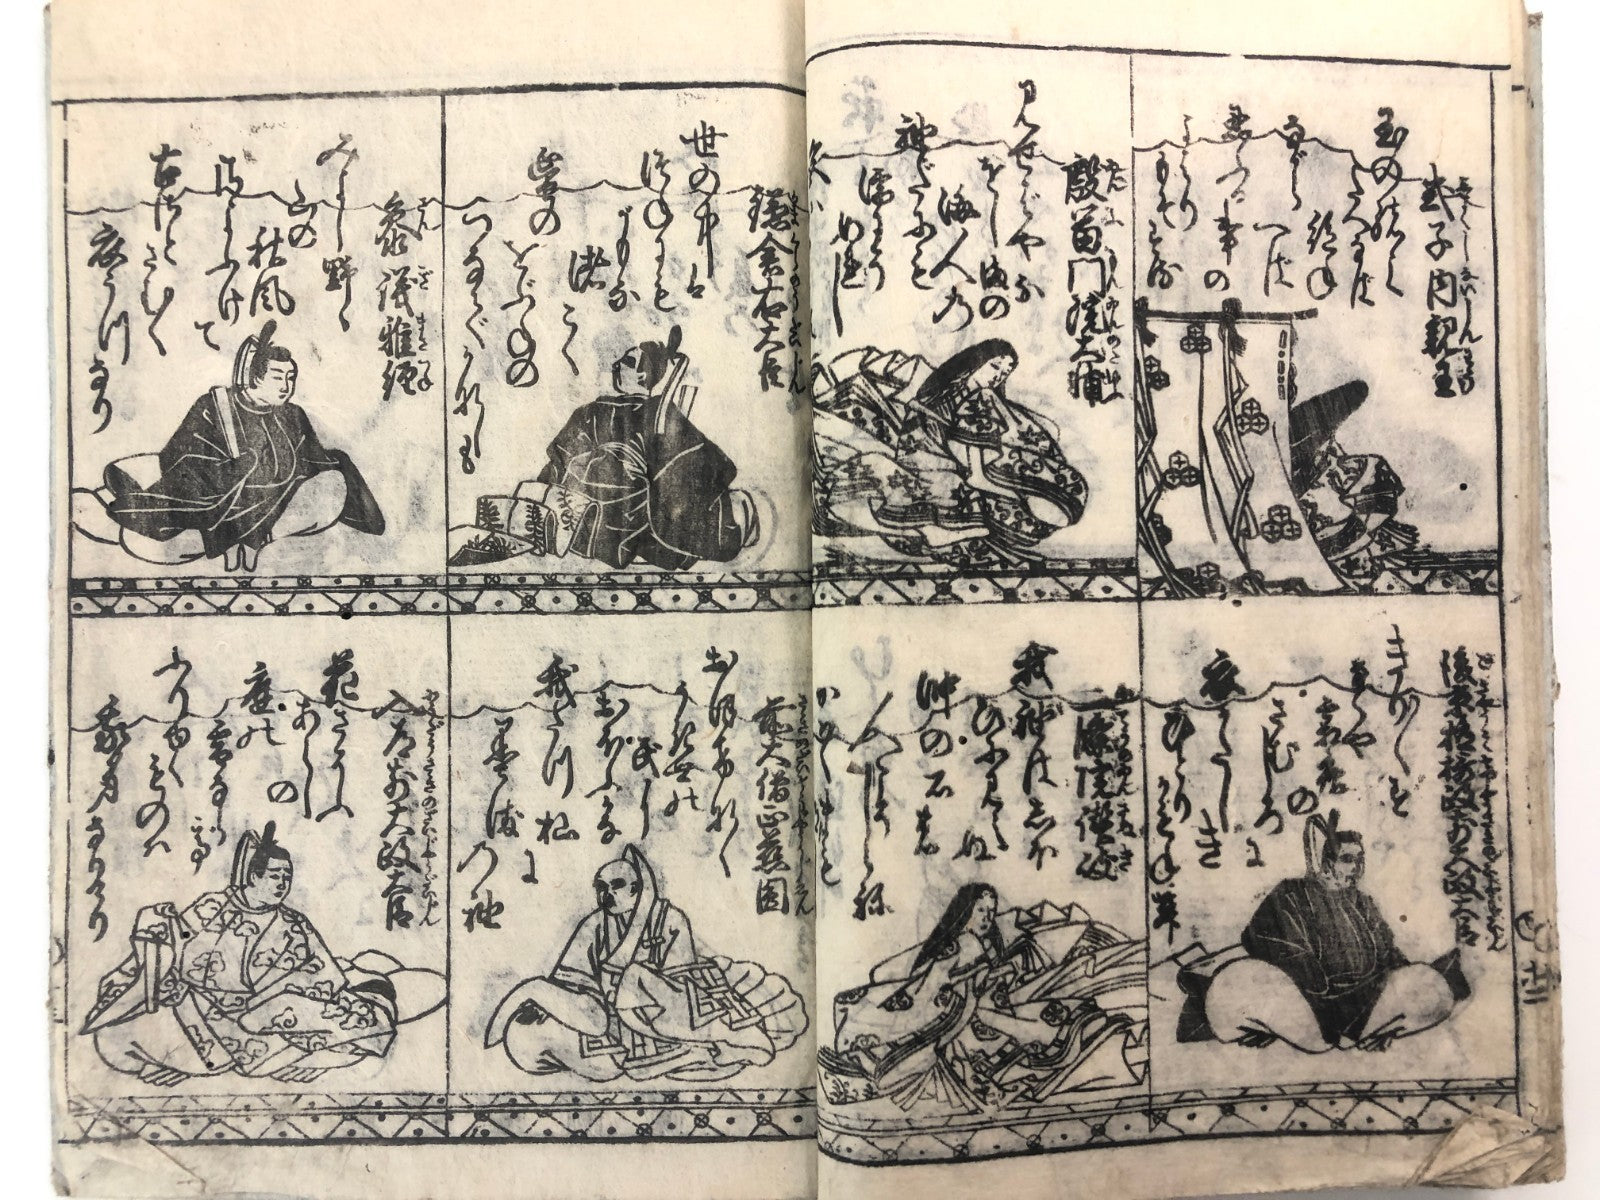 式子内親王
玉の緒よ
たえなば
絶ね
ながら
へば
忍ぶる
事の
よはり
もぞする
殷富門院大輔
見せばやな
をじまの
海人の
袖だにも
濡にぞ
ぬれし
後京極摂政前太政大臣
きり〳〵す
なくや
霜夜の
さむしろに
衣かたしき
ひとりかもねん
二條院讃岐
我袖はしほ
ひに見えぬ
沖の石の
人こそしらね
かはくまもなし
鎌倉右大臣
世の中は
つねにも
がもな
渚こぐ
蜑の
をぶねの
つなでかなしも
参議雅経
みよし野ゝ
山の
秋風
さよふけて
古さと
さむく
衣うつなり
前大僧正慈圓
おほけなく
うき世の
民に
おほふかな
我たつ杣に
墨染の袖
入道前太政大臣
花さそふ
あらしの
庭の
雪ならで
ふりゆく
ものは
我身なりけり